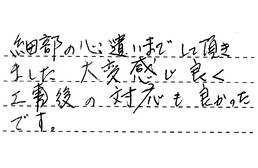 細部の心遣いまでして頂き
ました 大変感じ良く
工事後の対応も良かった
です。